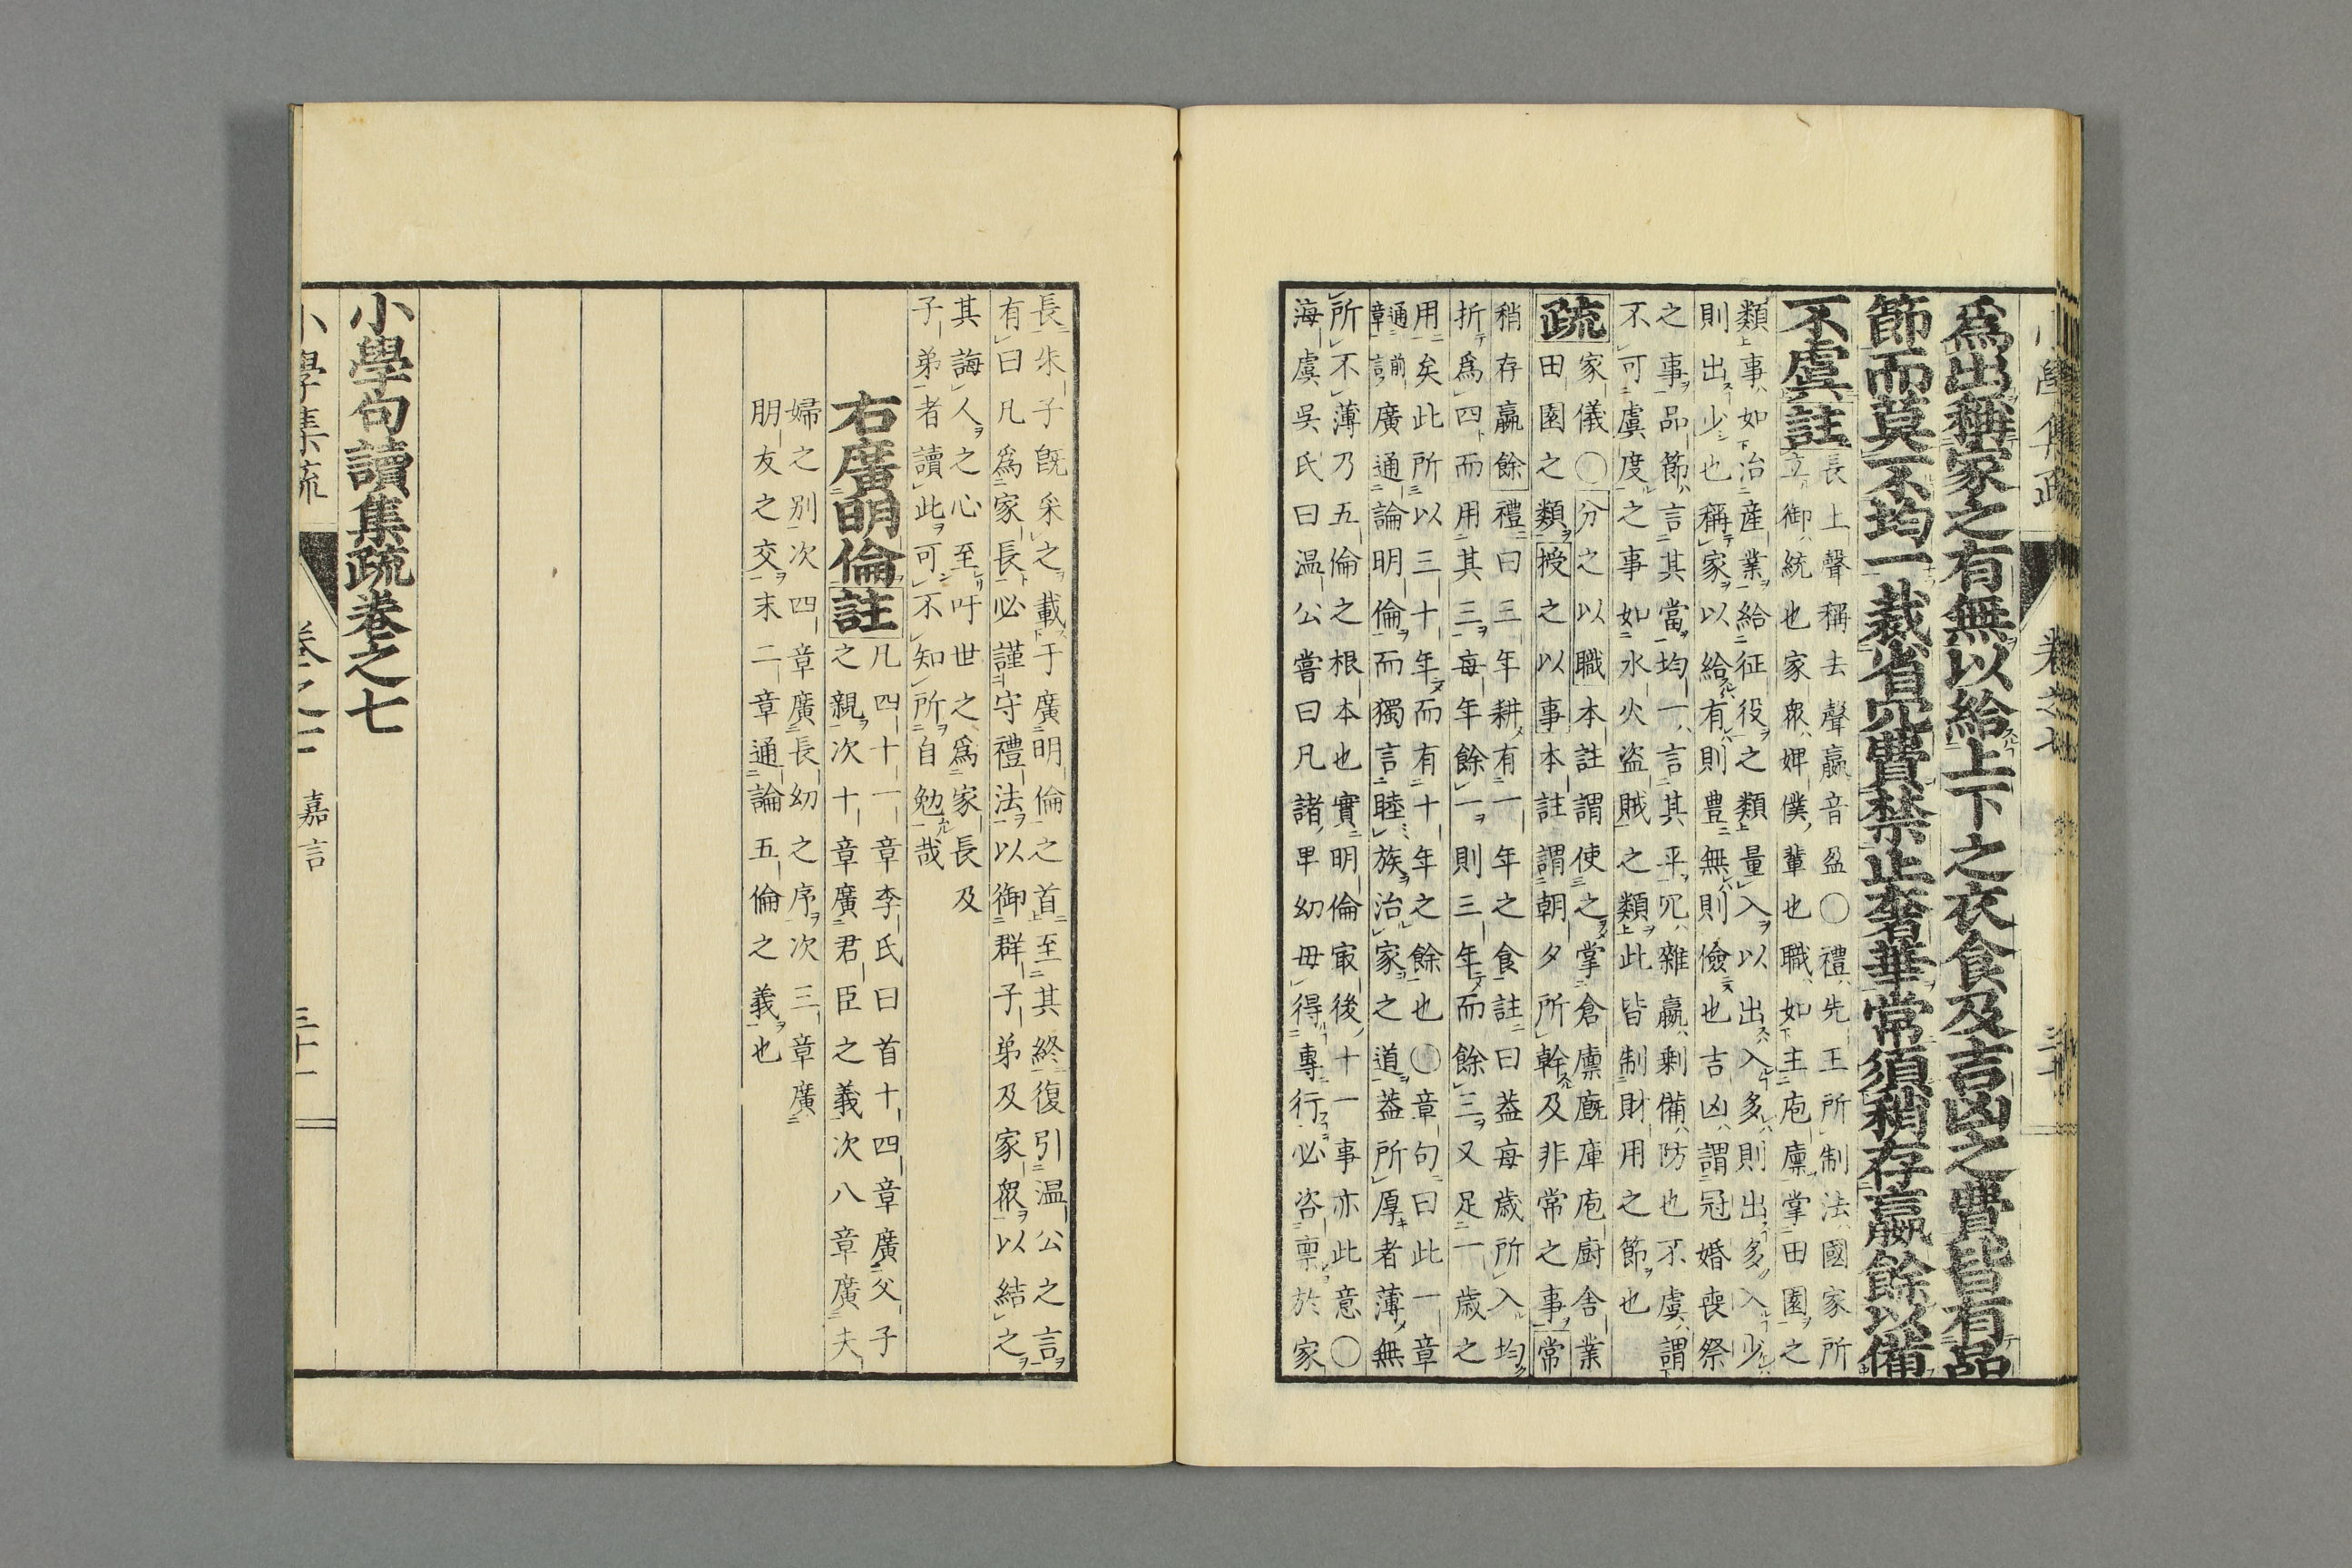 爲出稱家之有無以給上下之衣食及吉凶之費皆有品
節而莫不均一裁省冗費禁止奢華常須稍存贏餘以備
不虞註
長上聲稱去聲贏音盈○禮先王所制法國家所
立御統也家衆婢僕輩也職如主庖廩掌田園之
類事如治産業給征役之類量入以出入多則出多入少
則出少也稱家以給有則豊無則儉也吉凶謂冠婚喪祭
之事品節言其當均一言其平冗雜贏剩備防也不虞謂
不可虞度之事如水火盜賊之類此皆制財用之節也
疏
家儀○分之以職本註謂使之掌倉廩廐庫庖厨舎業
田園之類授之以事本註謂朝夕所幹及非常之事常
稍存贏餘禮曰三年耕有一年之食註曰蓋每歳所入均
折爲四而用其三每年餘一則三年而餘三又足一歳之
用矣此所以三十年而有十年之餘也○章句曰此一章
通章前言廣通論明倫而獨言睦族治家之道蓋所厚者薄無
所不薄乃五倫之根本也實明倫㝡後十一事亦此意○
海虞吳氏曰温公嘗曰凡諸卑幼毋得專行必咨稟於家
長朱子既采之載于廣明倫之首至其終復引温公之言
有曰凡爲家長必謹守禮法以御群子弟及家衆以結之
其誨人之心至吁世之爲家長及
子弟者讀此可不知所自勉哉
右廣明倫註
凡四十一章李氏曰首十四章廣父子
之親次十章廣君臣之義次八章廣夫
婦之别次四章廣長幼之序次三章廣
朋友之交末二章通論五倫之義也
小學句讀集疏巻之七
嘉言
三十一